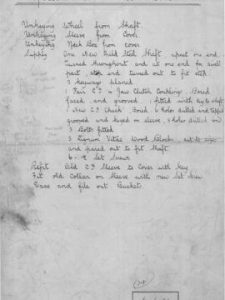 Unkeying Wheel from Shaft
Unkeying Sleeve from Cover
Unkeying Neck Box from cover
Supply One New Mild Steel Shaft upset one end
turned throughout and at one end for swell
part, and turned out to fit with
3 keyways planed
1 Pair C.I. Jaw Clutch Couplings Bored
faced and grooved, fitted with key to shaft
1 New C.I. Bored 4 holes drilled and tapped
grooved and keyed on sleeve, 4 holes drilled on
3 Bolts fitted
3 Lignum Vitae Wood Blocks cut to size
and pared out to fit Shaft
6 Set Screws
Refit Old C.I. Sleeve to Cover with Key
Fit old Collar on Sleeve with new Set Screw
and file out Bucket